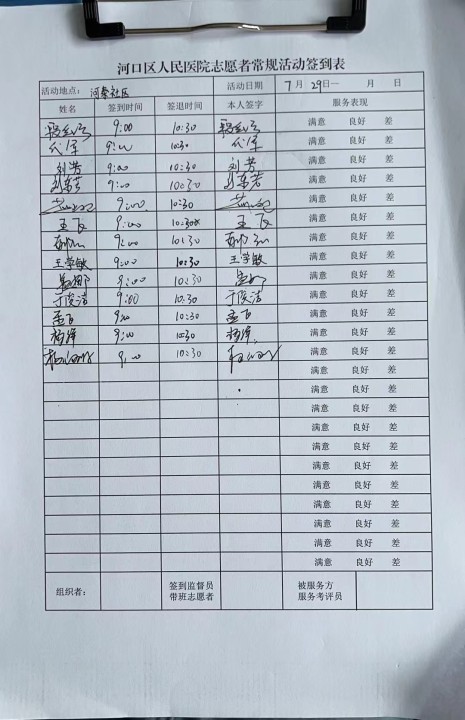 河口区人民医院志愿者常规活动签到表
活动地点： 河泰社区 活动日期 7月29日— 月 日
姓名 签到时间 签退时间 本人签字 服务表现
9:00 10:30 满意 良好 差
9:00 10:30 满意 良好 差
刘芳 9:00 10:30 刘芳 满意 良好 差
9:00 10:30 满意 良好 差
9:00 10:30 满意 良好 差
王飞 9:00 10:30 王飞 满意 良好 差
9:00 10:30 满意 良好 差
王学敏 9:00 10:30 王学敏 满意 良好 差
9:00 10:30 满意 良好 差
于俊洁 9:00 10:30 于俊洁 满意 良好 差
9:00 10:30 满意 良好 差
杨泽 9:00 10:30 杨泽 满意 良好 差
9:00 10:30 满意 良好 差
满意 良好 差
满意 良好 差
满意 良好 差
满意 良好 差
满意 良好 差
满意 良好 差
满意 良好 差
满意 良好 差
满意 良好 差
满意 良好 差
满意 良好 差
组织者： 签到监督员 被服务方
带班志愿者 服务考评员